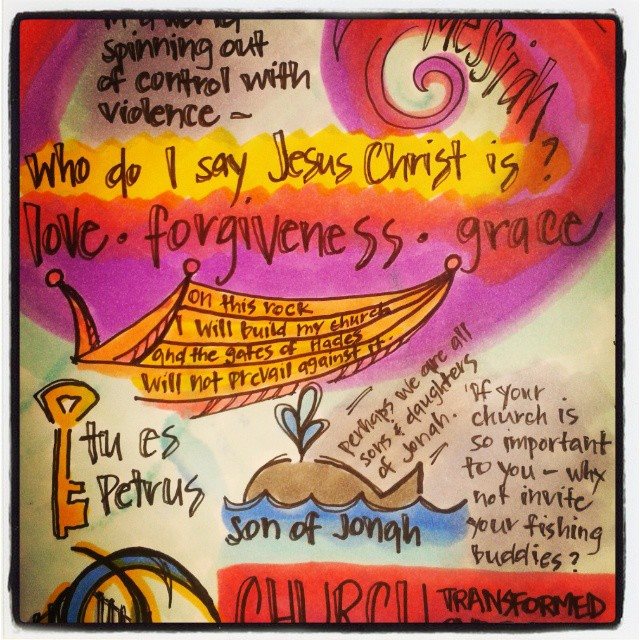 spinning out
of control with
violence ~
Messiah
Who do I say Jesus Christ is?
love · forgiveness · grace
on this rock
I will build my church
and the gates of Hades
will not prevail against it.
tu es
Petrus
Perhaps we are all
sons & daughters
of Jonah.
son of Jonah
"If your
church is
so important
to you - why
not invite
your fishing
buddies?
CHURCH TRANSFORMED